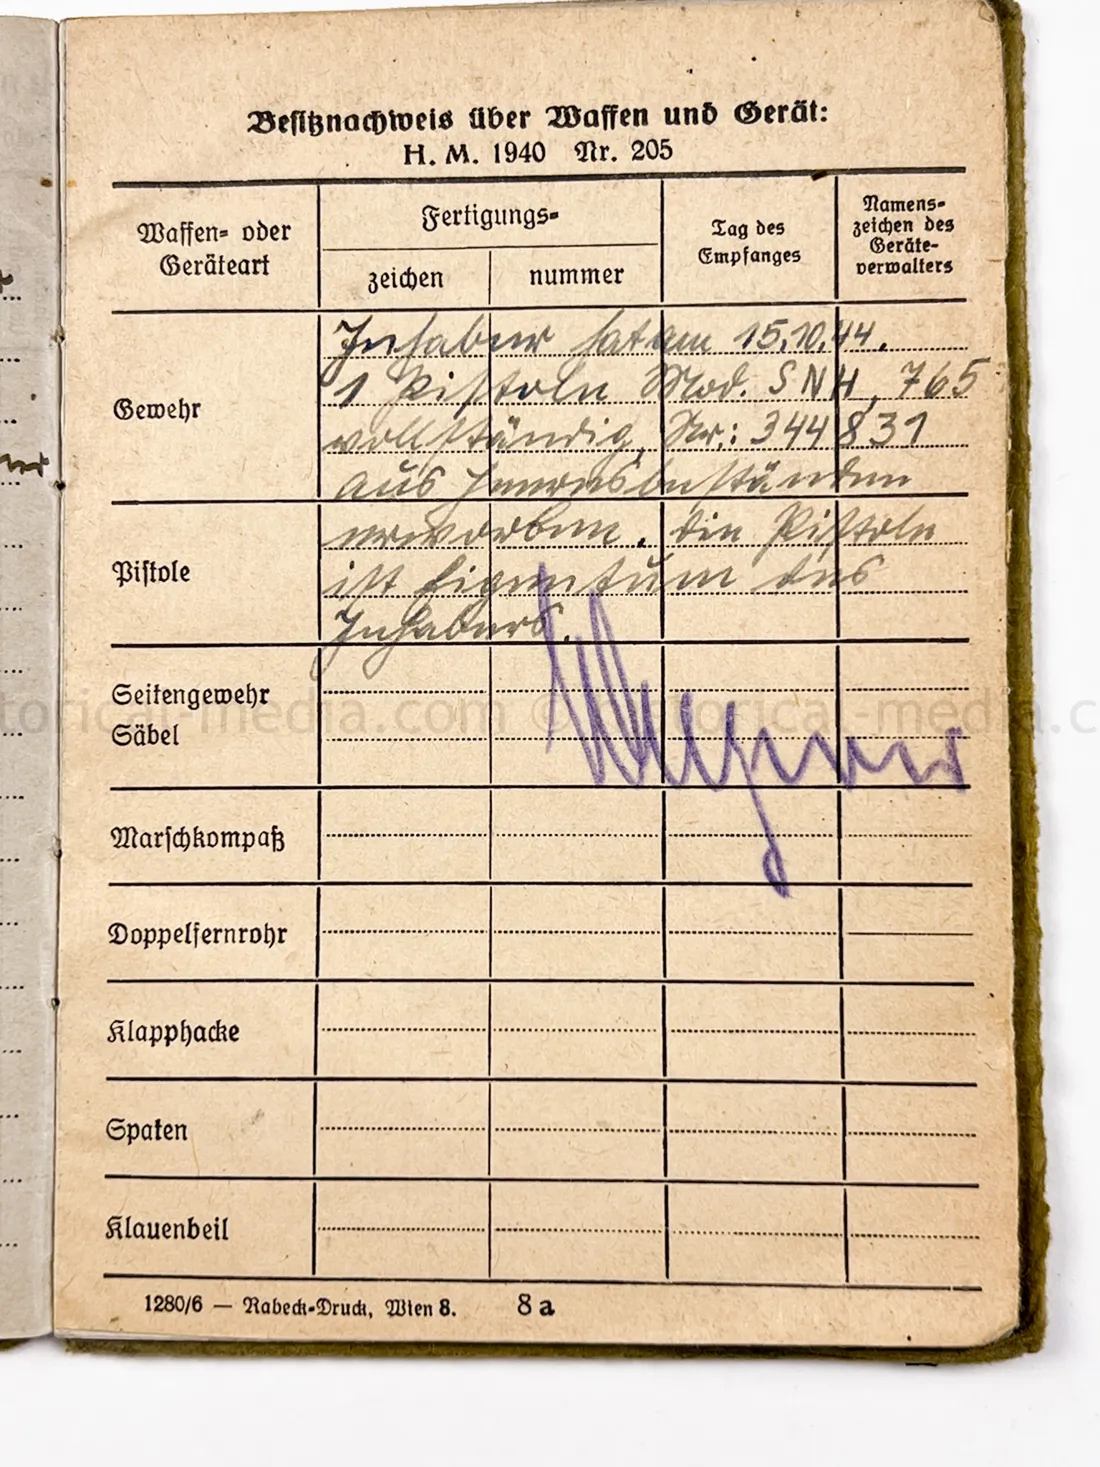 Besitznachweis über Waffen und Gerät:
H. M. 1940 Nr. 205
Waffen= oder
Geräteart
Fertigungs=
zeichen
nummer
Tag des
Empfanges
Namens=
zeichen des
Geräte=
verwalters
Gewehr
Inhaber hat am 15.10.44.
1 Pistole Mod. SNH, 765
vollständig, Nr.: 344831
aus Heeresbeständen
Pistole
erworben. Die Pistole
ist Eigentum des
Inhabers.
Seitengewehr
Säbel
Marschkompaß
Doppelfernrohr
Klapphacke
Spaten
Klauenbeil
1280/6 — Rabeck=Druck, Wien 8.
8 a
historical-media.com © historical-media.c